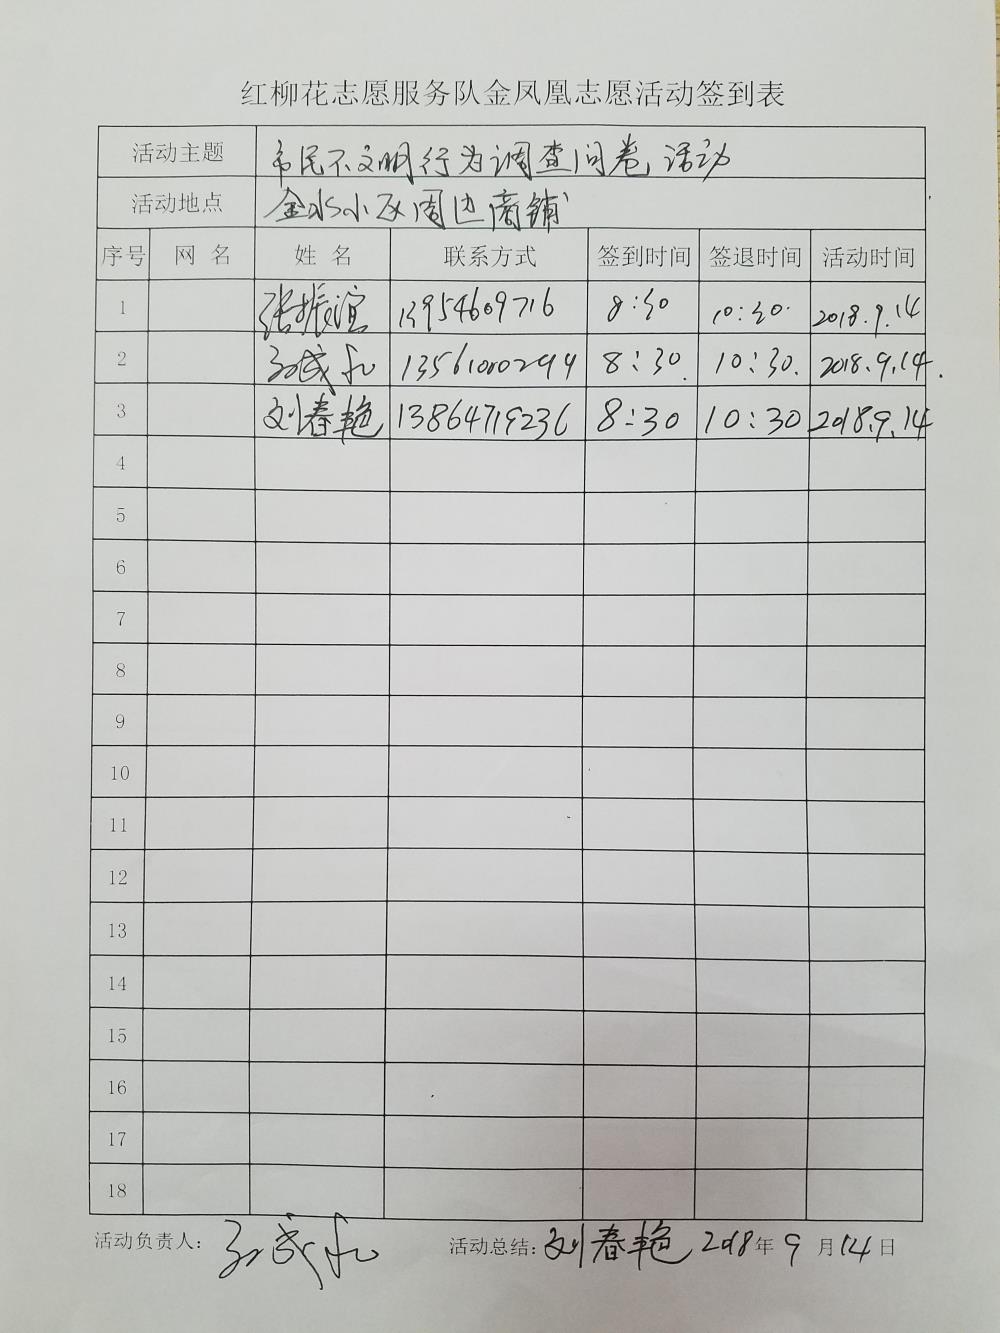 红柳花志愿服务队金凤凰志愿活动签到表
活动主题 市民不文明行为调查问卷活动
活动地点 金水小区周边商铺
序号 网 名 姓 名 联系方式 签到时间 签退时间 活动时间
1 张振谊 13954609716 8:30 10:30. 2018.9.14
2 孙成礼 13561000294 8:30. 10:30. 2018.9.14.
3 刘春艳 13864719236 8:30 10:30 2018.9.14
4
5
6
7
8
9
10
11
12
13
14
15
16
17
18
活动负责人: 孙成礼 活动总结: 刘春艳 2018年 9 月14日